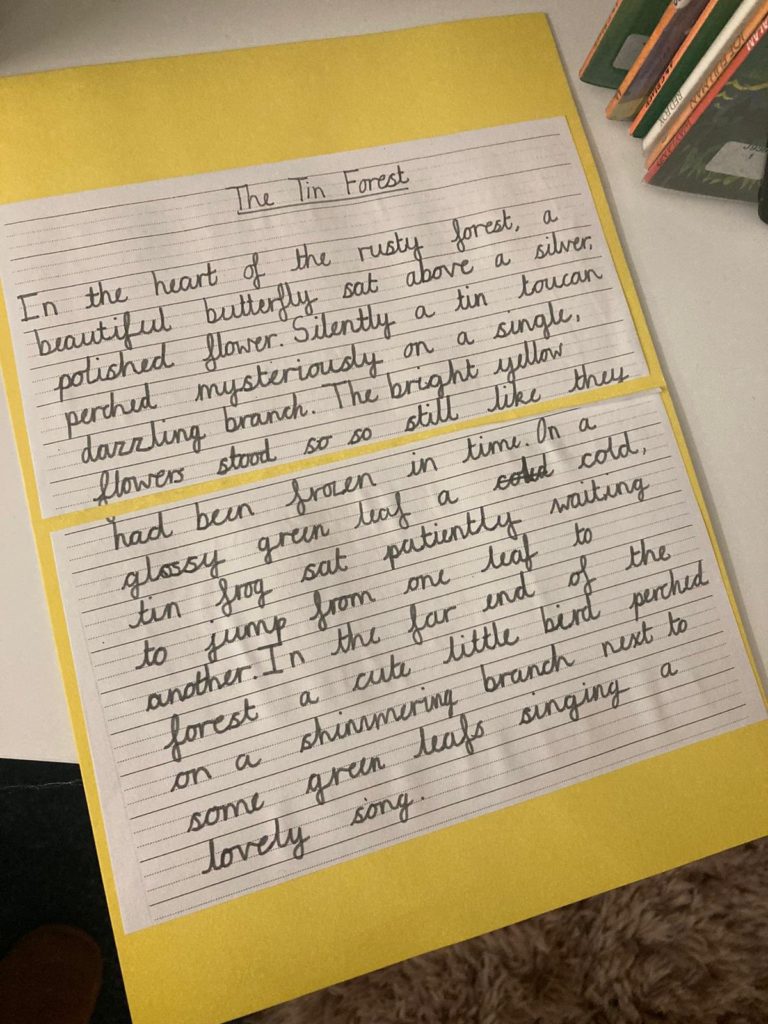 The Tin Forest
In the heart of the rusty forest, a
beautiful butterfly sat above a silver,
polished flower. Silently a tin toucan
perched mysteriously on a single,
dazzling branch. The bright yellow
flowers stood so so still like they
had been frozen in time. On a
glossy green leaf a cold,
tin frog sat patiently waiting
to jump from one leaf to
another. In the far end of the
forest a cute little bird perched
on a shimmering branch next to
some green leafs singing a
lovely song.